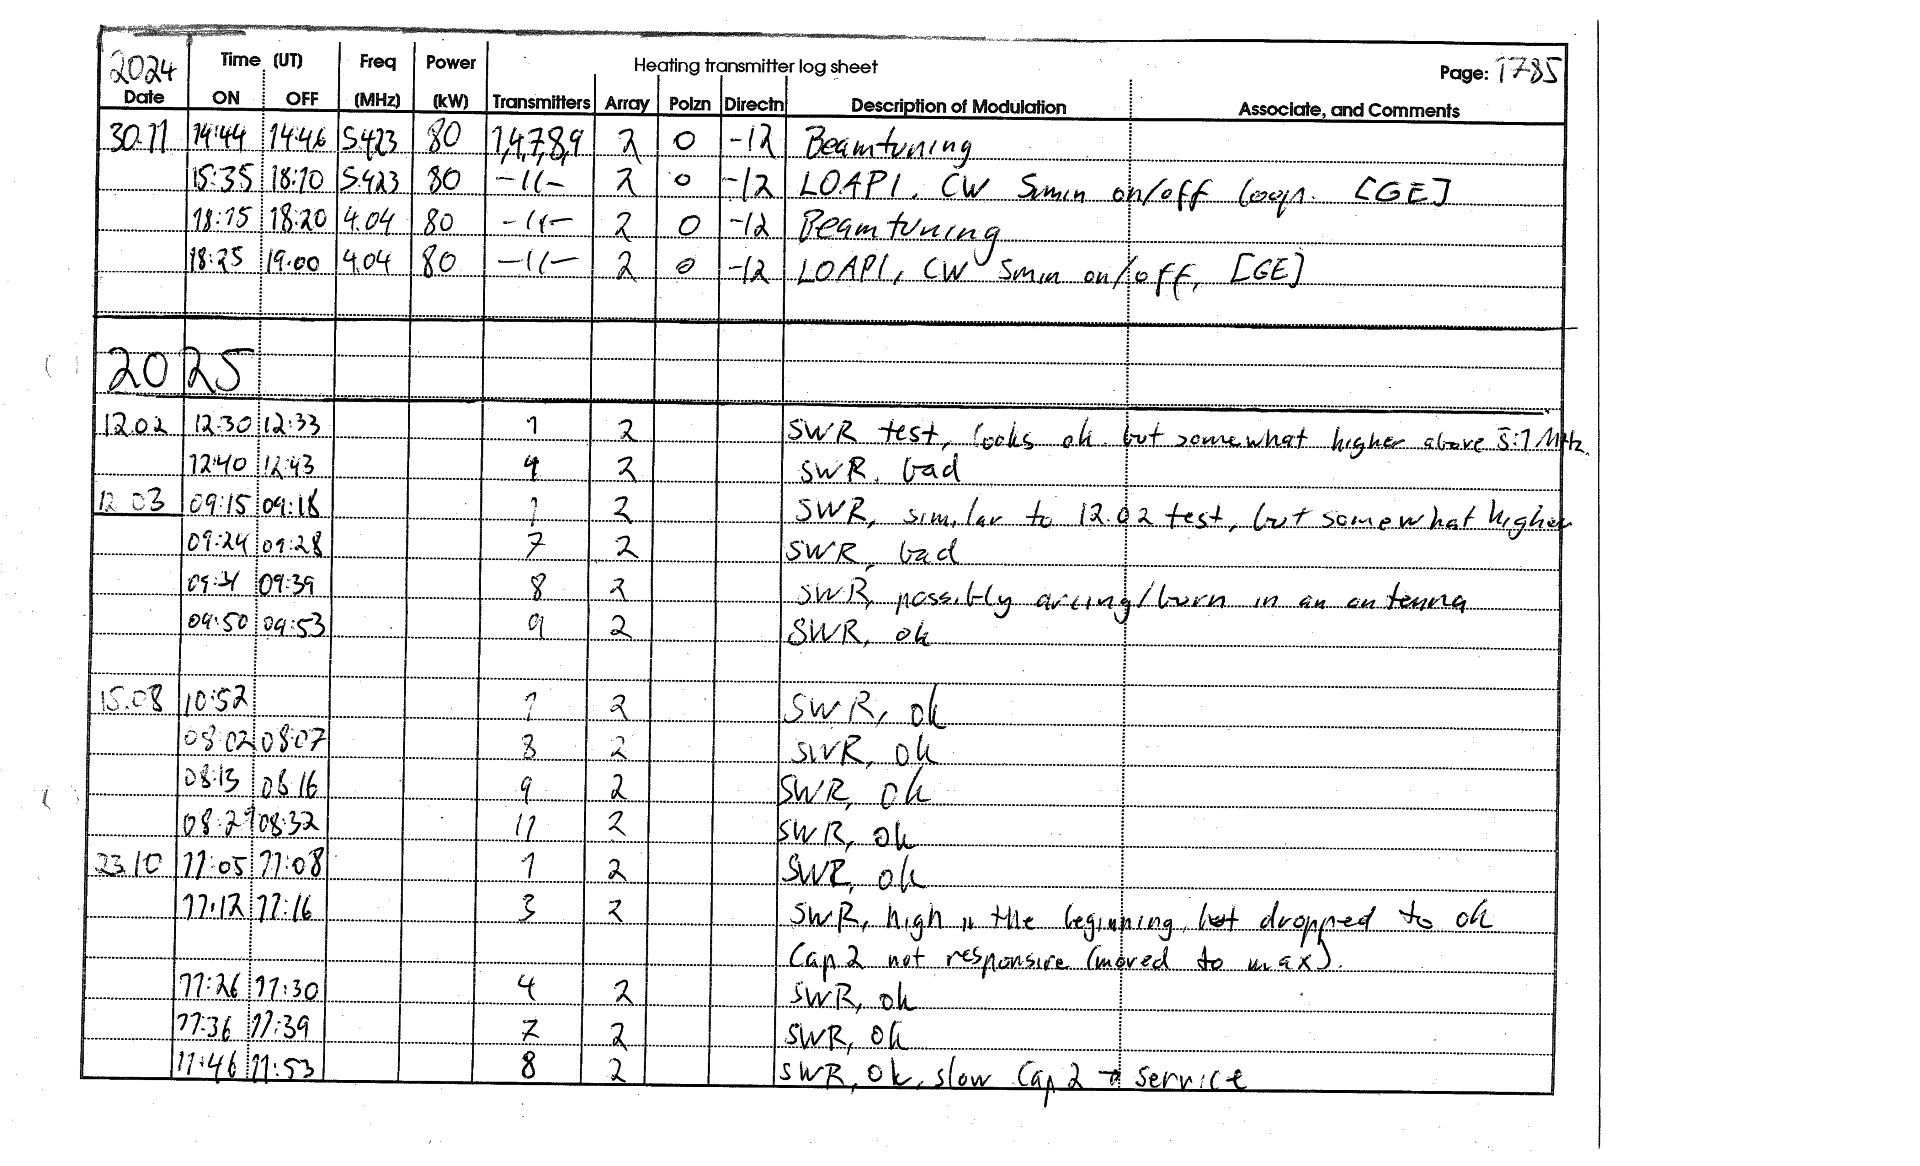 2024 Time (UT) Freq Power Heating transmitter log sheet Page: 1785
Date ON OFF (MHz) (kW) Transmitters Array Polzn Directn Description of Modulation Associate, and Comments
30.11 14:44 14:46 5.423 80 1,4,7,8,9 2 O -12 Beamtuning
15:35 18:10 5.423 80 -11- 2 O -12 LOAPI, CW 5min on/off loop. [GE]
18:15 18:20 4.04 80 -11- 2 O -12 Beamtuning
18:25 19:00 4.04 80 -11- 2 O -12 LOAPI, CW 5min on/off, [GE]
2025
12.02 12:30 12:33 1 2 SWR test, looks ok but somewhat higher above 5.1 MHz.
12:40 12:43 4 2 SWR, bad
12.03 09:15 09:18 1 2 SWR, similar to 12.02 test, but somewhat higher
09:24 09:28 7 2 SWR, bad
09:39 8 2 SWR, possibly arcing/burn in an antenna
09:50 09:53 9 2 SWR, ok
15.08 10:52 1 2 SWR, ok
08:02 08:07 3 2 SWR, ok
08:13 08:16 9 2 SWR, ok
08:29 08:32 11 2 SWR, ok
23.10 11:05 11:08 1 2 SWR, ok
11:12 11:16 3 2 SWR, high in the beginning, but dropped to ok
Cap 2 not responsive (moved to max).
11:26 11:30 4 2 SWR, ok
11:36 11:39 7 2 SWR, ok
11:46 11:53 8 2 SWR, ok, slow Cap 2 → service